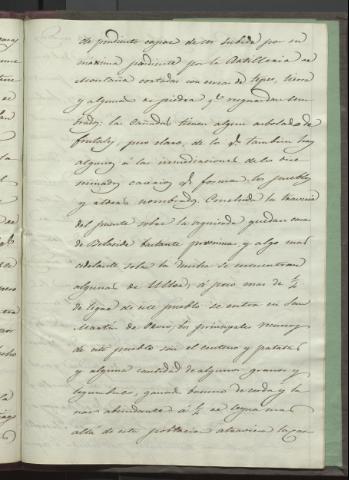 de pendiente capaz de ser subida por su
maxima pendiente por la Artilleria de
Montaña cortadas con cercas de tepes, tierra
y algunas de piedra qe resguardan sem-
brados; las Cañadas tienen algun arbolado de
frutales, pero claro, de lo qe tambien hay
alguno á las inmediaciones de los deno-
minados caserios qe forman los pueblos
y aldeas nombradas. Concluida la travesia
del puente sobre la izquierda quedan casas
de bastante proximas y algo mas
adelante sobre la derecha se encuentran
algunas de Villar, á poco mas de ¼
de legua de este pueblo se entra en San
Martin de los principales
de este pueblo son el centeno y patatas
y alguna cantidad de algunos granos y
legumbres, ganado bacuno de cerda y la-
nar abundantes á ¼ de legua mas
alla de esta poblacion atraviesa